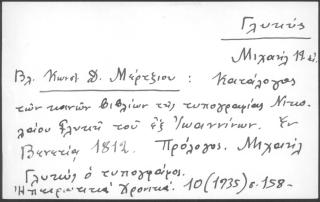 Γλυκύς
Μιχαήλ 19 αἰ.
Βλ. Κωνστ. Δ. Μέρτζιου : Κατάλογος
τῶν κοινῶν βιβλίων τῆς τυπογραφίας Νικο-
λάου Γλυκῆ τοῦ ἐξ Ἰωαννίνων. Ἐν
Βενετίᾳ 1812. Πρόλογος. Μιχαήλ
Γλυκύς ὁ τυπογράφος.
Ἠπειρωτικά Χρονικά. 10 (1935) σ. 158-